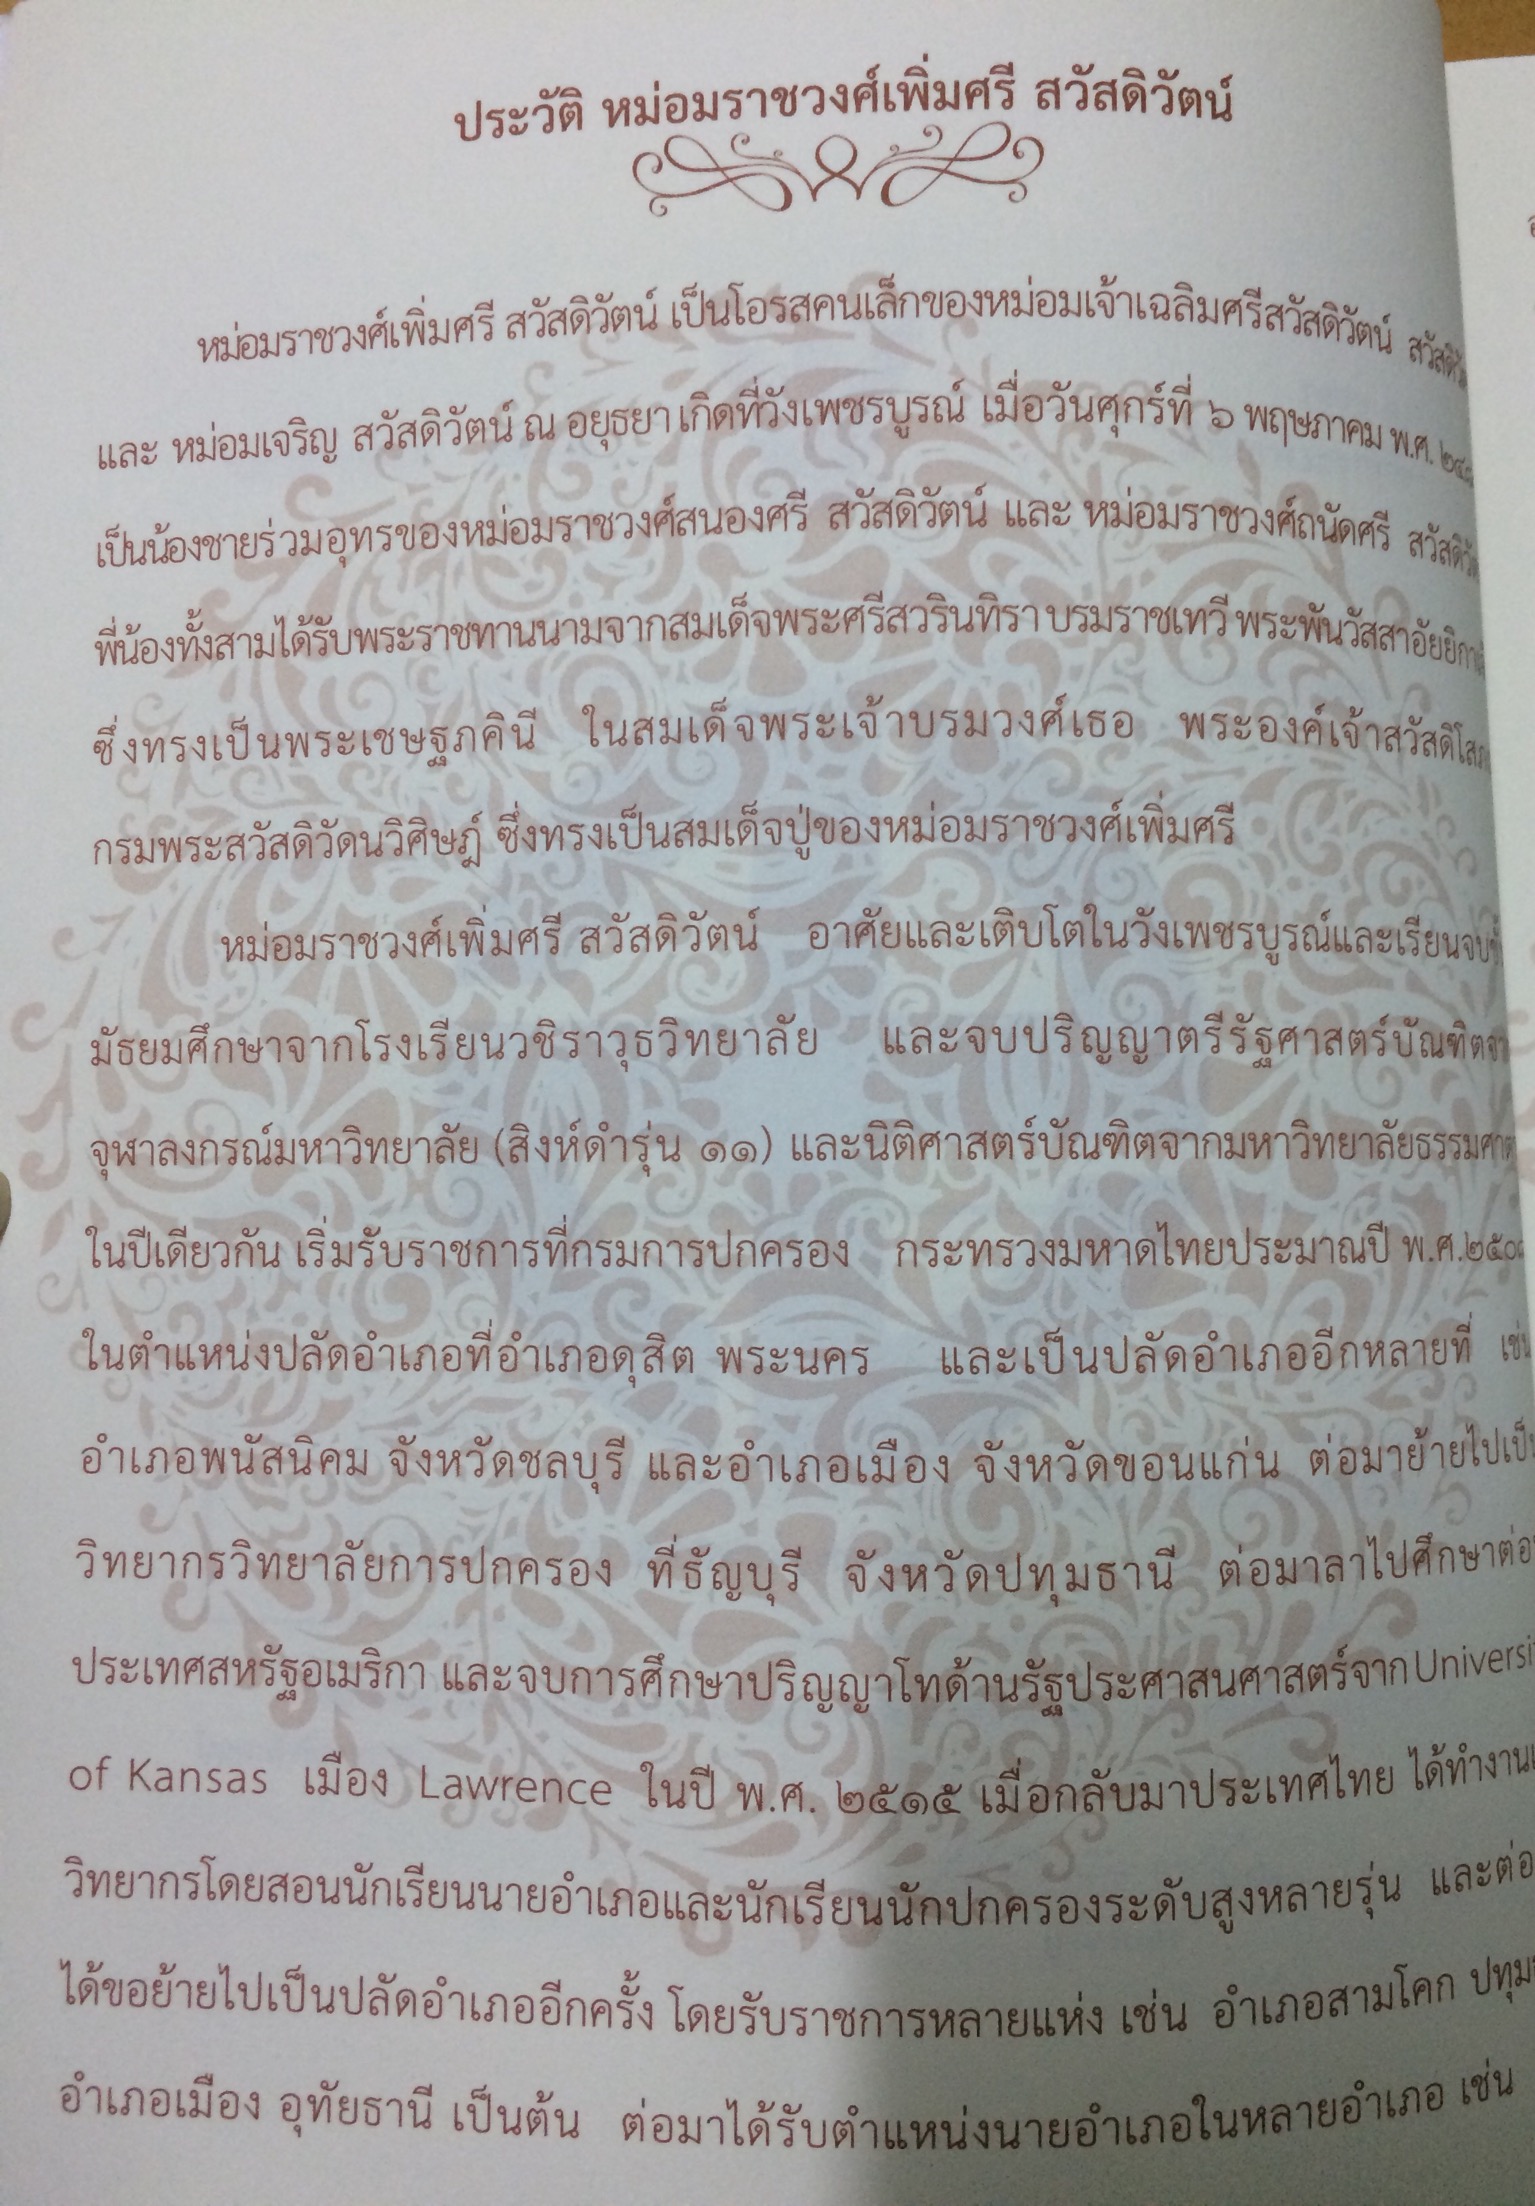 ประวัติ หม่อมราชวงศ์เพิ่มศรี สวัสดิวัตน์
หม่อมราชวงศ์เพิ่มศรี สวัสดิวัตน์ เป็นโอรสคนเล็กของหม่อมเจ้าเฉลิมศรีสวัสดิวัตน์
และ หม่อมเจริญ สวัสดิวัตน์ ณ อยุธยา เกิดที่วังเพชรบูรณ์ เมื่อวันศุกร์ที่ ๖ พฤษภาคม พ.ศ.
เป็นน้องชายร่วมอุทรของหม่อมราชวงศ์สนองศรี สวัสดิวัตน์ และ หม่อมราชวงศ์ถนัดศรี
พี่น้องทั้งสามได้รับพระราชทานนามจากสมเด็จพระศรีสวรินทิรา บรมราชเทวี พระพันวัสสาอัยยิกา
ซึ่งทรงเป็นพระเชษฐภคินี ในสมเด็จพระเจ้าบรมวงศ์เธอ พระองค์เจ้าสวัสดิโส
กรมพระสวัสดิวัดนวิศิษฎ์ ซึ่งทรงเป็นสมเด็จปู่ของหม่อมราชวงศ์เพิ่มศรี
หม่อมราชวงศ์เพิ่มศรี สวัสดิวัตน์ อาศัยและเติบโตในวังเพชรบูรณ์และเรียนจบ
มัธยมศึกษาจากโรงเรียนวชิราวุธวิทยาลัย และจบปริญญาตรีรัฐศาสตร์บัณฑิต
จุฬาลงกรณ์มหาวิทยาลัย (สิงห์ดำรุ่น ๑๑) และนิติศาสตร์บัณฑิตจากมหาวิทยาลัยธรรมศา
ในปีเดียวกัน เริ่มรับราชการที่กรมการปกครอง กระทรวงมหาดไทยประมาณปี พ.ศ.๒๕๐
ในตำแหน่งปลัดอำเภอที่อำเภอดุสิต พระนคร และเป็นปลัดอำเภออีกหลายที่ เช่น
อำเภอพนัสนิคม จังหวัดชลบุรี และอำเภอเมือง จังหวัดขอนแก่น ต่อมาย้ายไปเป็น
วิทยากรวิทยาลัยการปกครอง ที่ธัญบุรี จังหวัดปทุมธานี ต่อมาลาไปศึกษาต่อ
ประเทศสหรัฐอเมริกา และจบการศึกษาปริญญาโทด้านรัฐประศาสนศาสตร์จาก Universi
of Kansas เมือง Lawrence ในปี พ.ศ. ๒๕๑๕ เมื่อกลับมาประเทศไทย ได้ทำงาน
วิทยากรโดยสอนนักเรียนนายอำเภอและนักเรียนนักปกครองระดับสูงหลายรุ่น และต่อ
ได้ขอย้ายไปเป็นปลัดอำเภออีกครั้ง โดยรับราชการหลายแห่ง เช่น อำเภอสามโคก ปทุม
อำเภอเมือง อุทัยธานี เป็นต้น ต่อมาได้รับตำแหน่งนายอำเภอในหลายอำเภอ เช่น